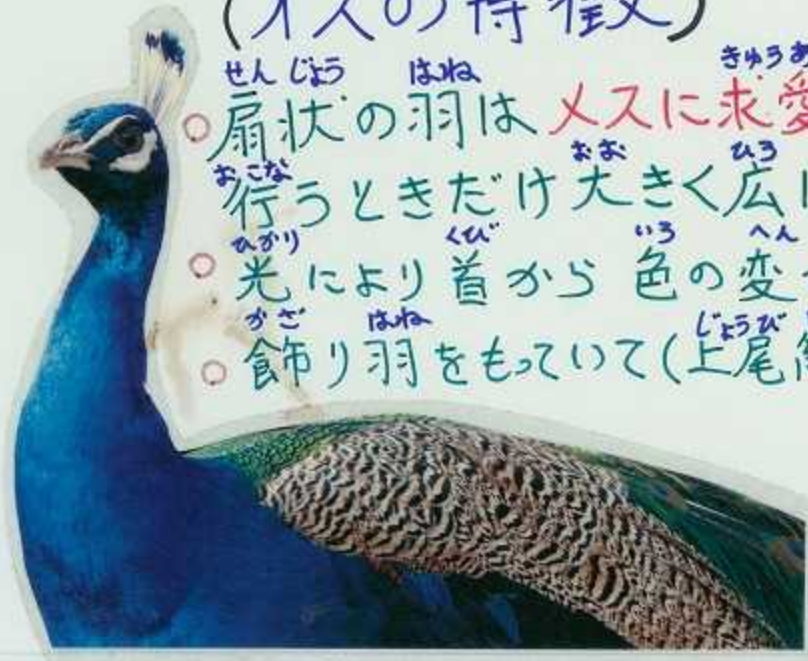 (オスの特徴)
せんじょう はね きゅうあ
○扇状の羽はメスに求愛
おこな おお ひろ
行うときだけ大きく広
ひかり くび いろ へん
○光により首から色の変
かざ はね じょうび
○飾り羽をもっていて(上尾